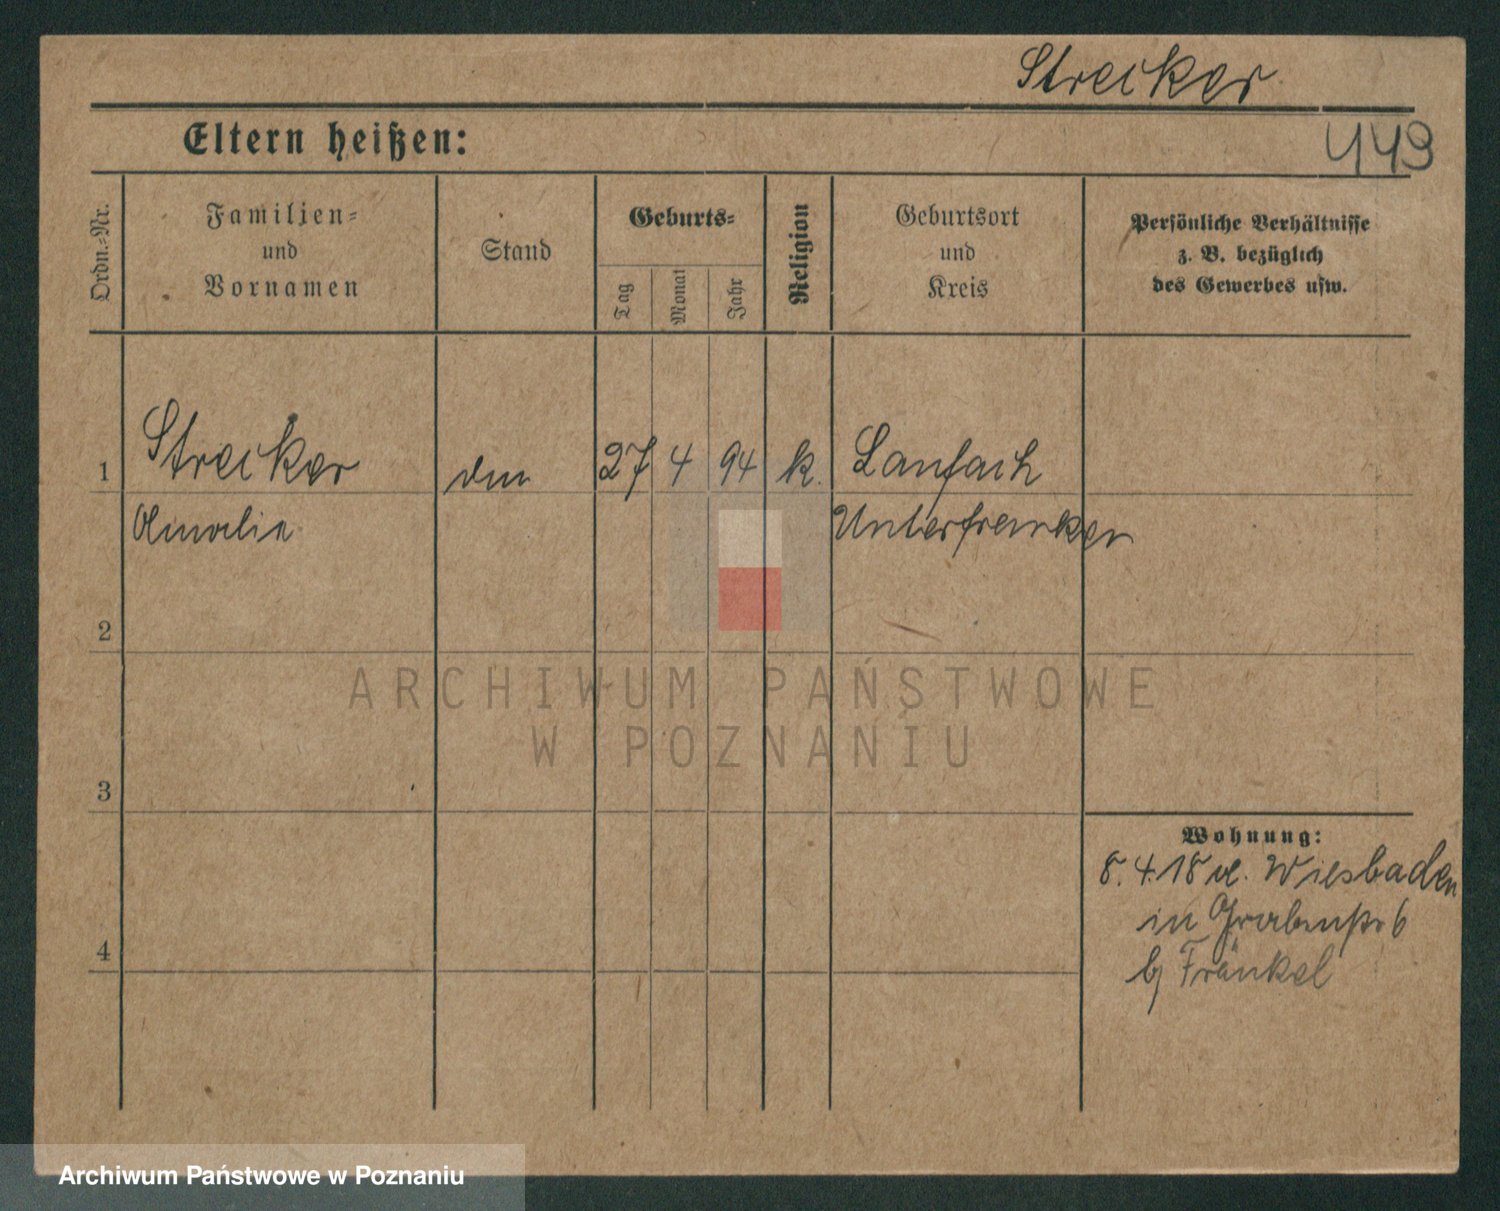 Strecker
Eltern heißen:
449
Ordn.-Nr.
Familien-
und
Vornamen
Stand
Geburts-
Tag
Monat
Jahr
Religion
Geburtsort
und
Kreis
Persönliche Verhältnisse
z. B. bezüglich
des Gewerbes usw.
1
Strecker
27
4
94
k.
Laufach
Amalie
Unterfranken
2
ARCHIWUM PAŃSTWOWE
W POZNANIU
3
Wohnung:
8.4.18 v. Wiesbaden
in Grabenstr 6
4
b/ Fränkel
Archiwum Państwowe w Poznaniu